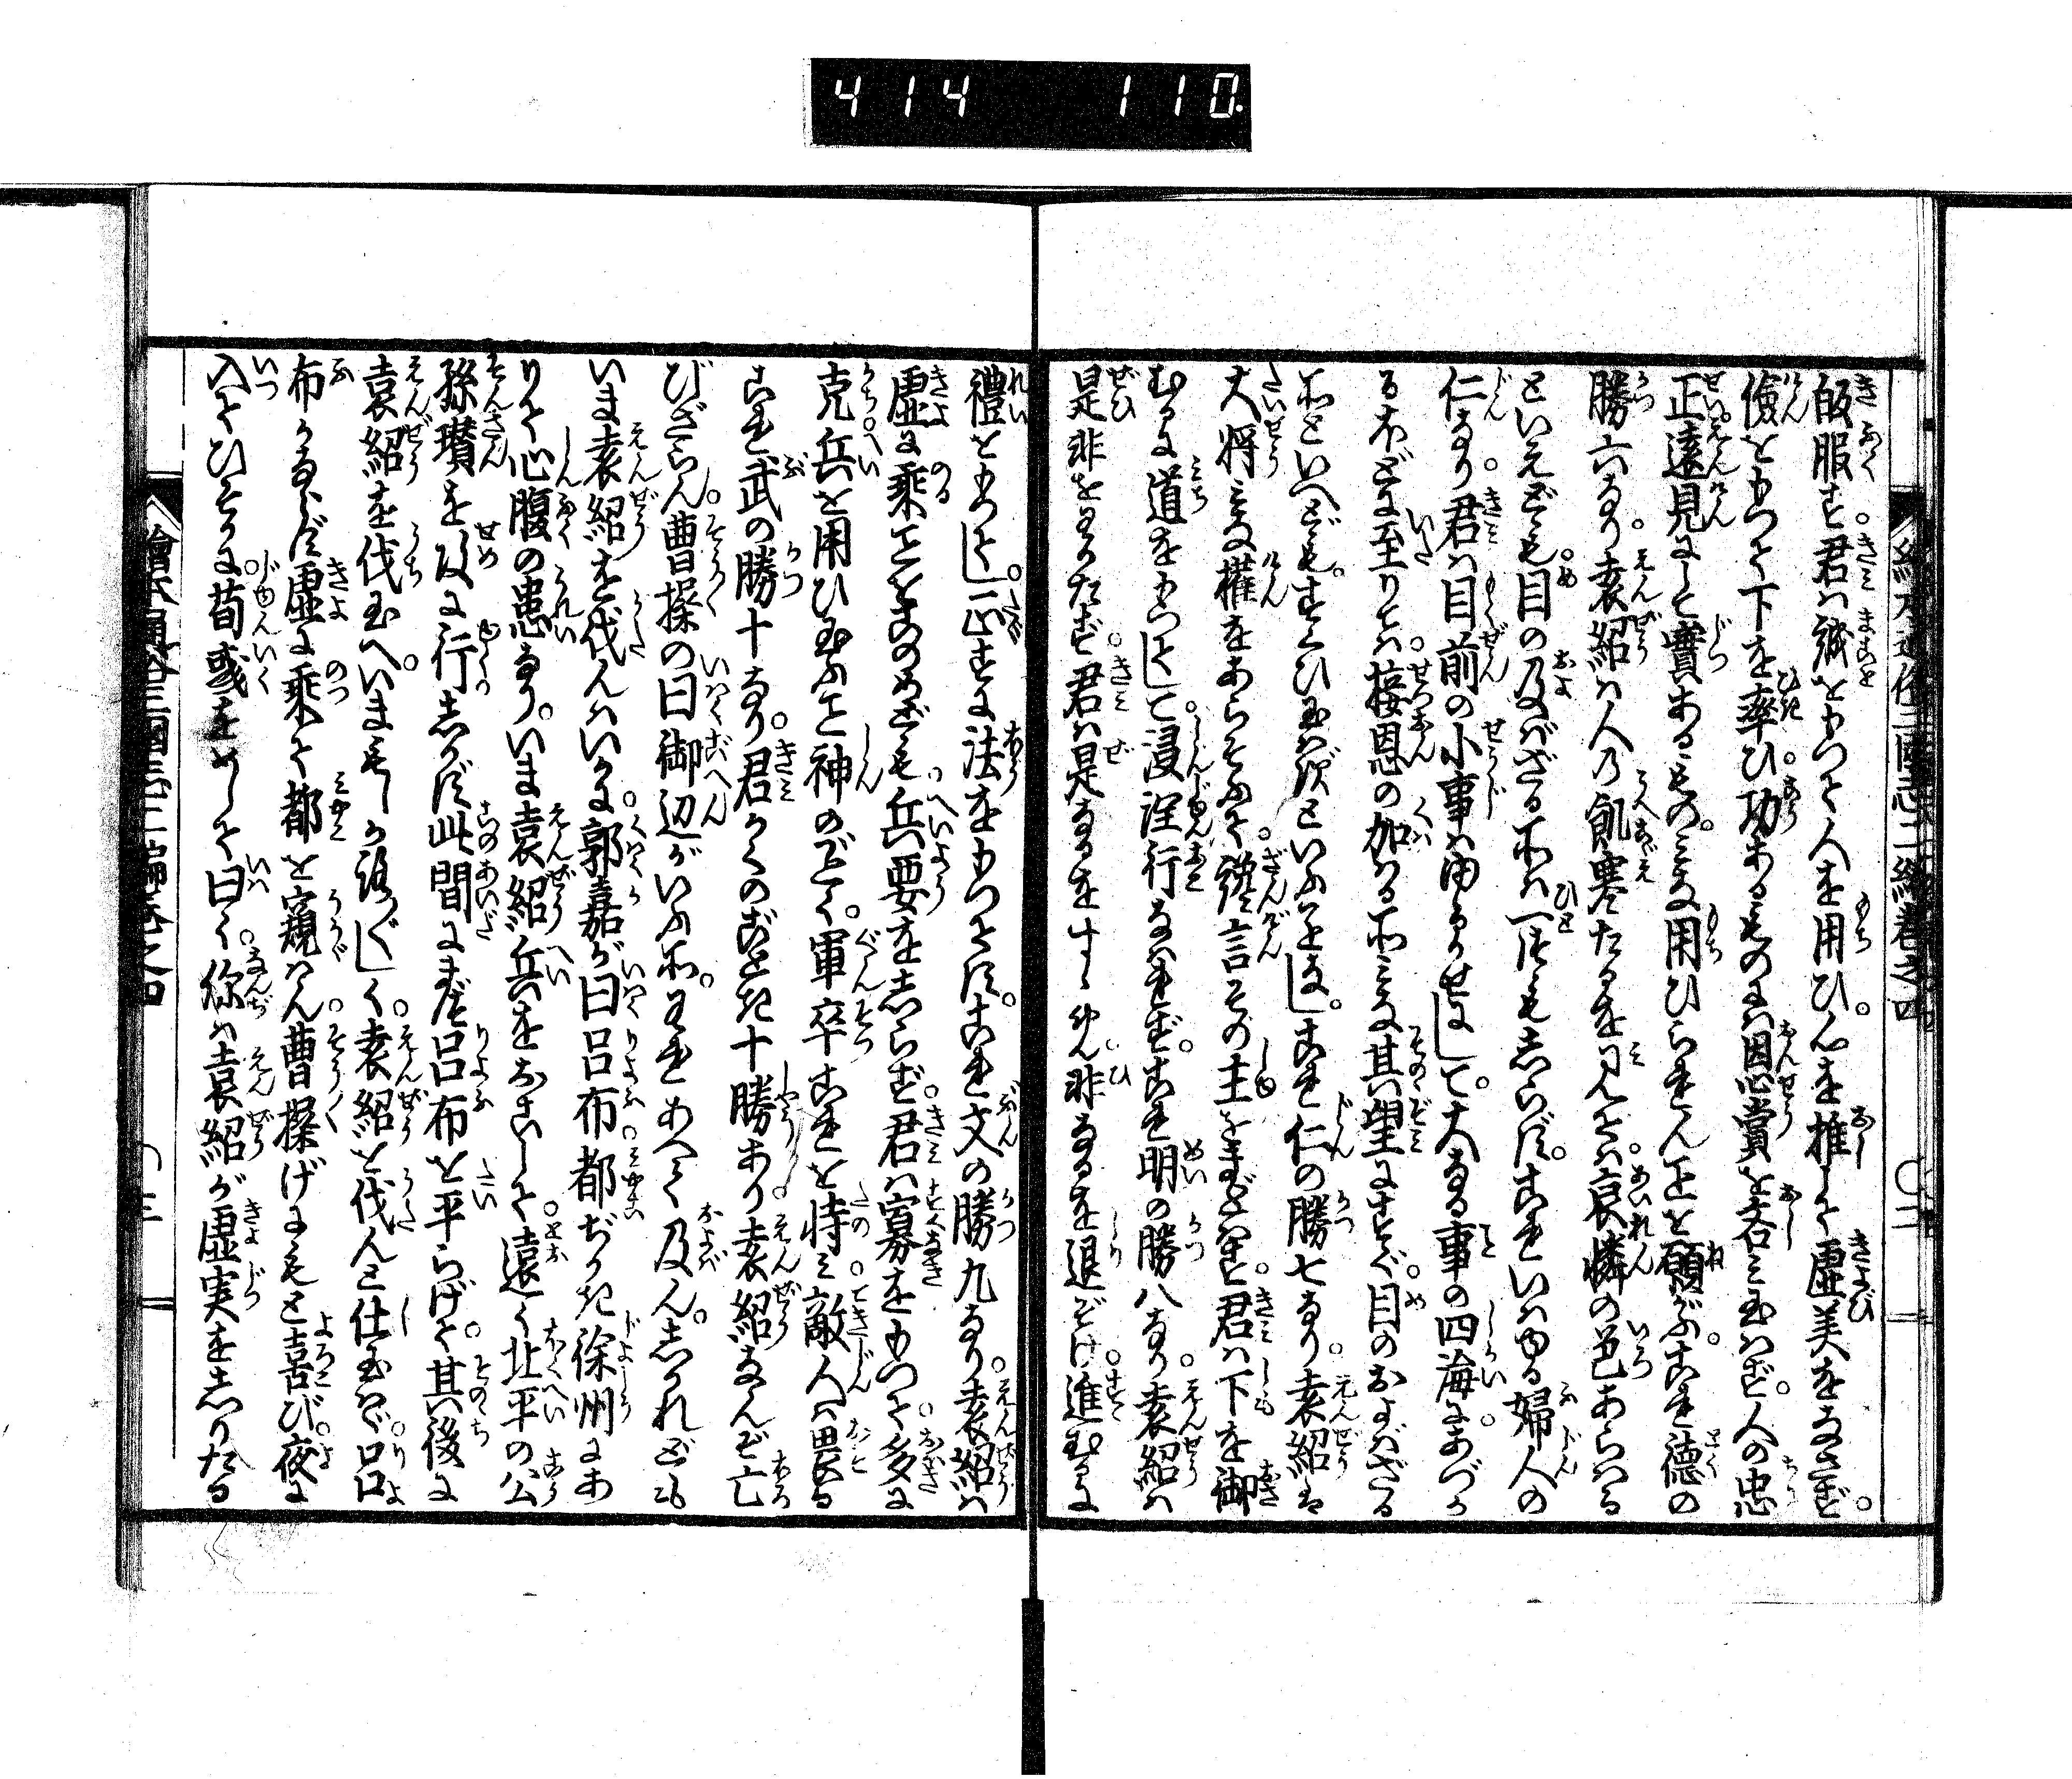 414 110.
皈服す。君ハ誠をもつて人を用ひ。心を推して虚美をなさず。
儉をもつて下を率ひ。功あるものにハ恩賞を吝ミ玉ハず。人の忠
正遠見にして實あるもの。ミな用ひられんことを願ふ。これ德の
勝六なり。袁紹ハ人乃飢寒たるを見てハ。哀憐の色あらハる
といえども。目の及バざる所ハ一ツもしらず。これいハゆる婦人の
仁なり。君ハ目前の小事ハゆるかせにして。大なる事の四海にあづか
るほどに至りてハ。接恩の加ハる所ミな其望にすぐ。目のおよバざる
所といへども。すくひ玉ハずといふことなし。これ仁の勝七なり。袁紹ハ
大將ミな權をあらそふて。讒言その主をまどハす。君ハ下を御
むるに道をもつてして。浸淫行なハれず。これ明の勝八なり。袁紹ハ
是非をわかたず。君ハ是なるをすゝめ。非なるを退ぞけ。進むるに
禮をもつてし。正すに法をもつてす。これ文の勝九なり。袁紹ハ
虚に乘ことをこのめども。兵要をしらず。君ハ寡をもつて。多に
克。兵を用ひ玉ふこと神のごとく。軍卒これを恃ミ。敵人ハ畏る
これ武の勝十なり。君かくのごとき十勝あり。袁紹なんぞ亡
びざらん。曹操の曰御辺がいふ所。われあへて及ん。しかれども
いま袁紹を伐んハいかに。郭嘉が曰呂布都ぢかき徐州にあ
りて心腹の患なり。いま袁紹兵をおこして。遠く北平の公
孫瓚を攻に行しかバ。此間にまづ呂布を平らげて。其後に
袁紹を伐玉へ。いまもしかろ〴〵しく。袁紹を伐んと仕玉ハヾ。呂
布かならず虚に乘て都を窺ハん。曹操げにもと喜び。夜に
入てひそかに。荀彧をめして曰く。你ハ袁紹が虚実をしりたる
繪本通俗三國志二編卷之四 〇二
繪本通俗三國志二編卷之四 〇三